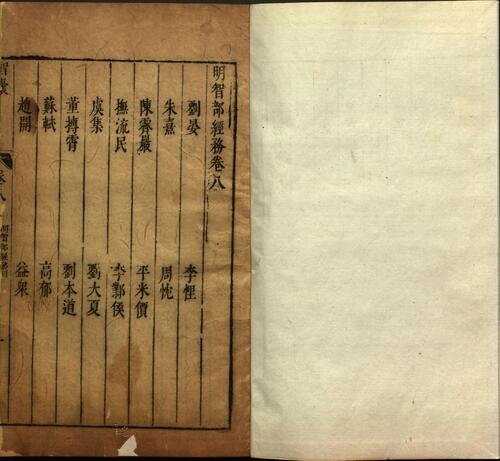 明智部經務卷八
劉晏
李悝
朱熹
周忱
陳霽巖
平米價
撫流民
李鄴侯
虞集
劉大夏
董摶霄
劉本道
蘇軾
高郵
趙開
益眾
智囊
卷八
明智部經務目